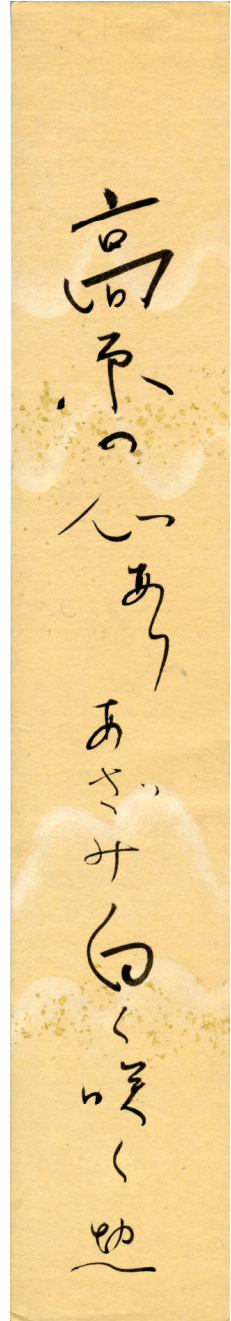 高原の心ありあざみ白く咲く